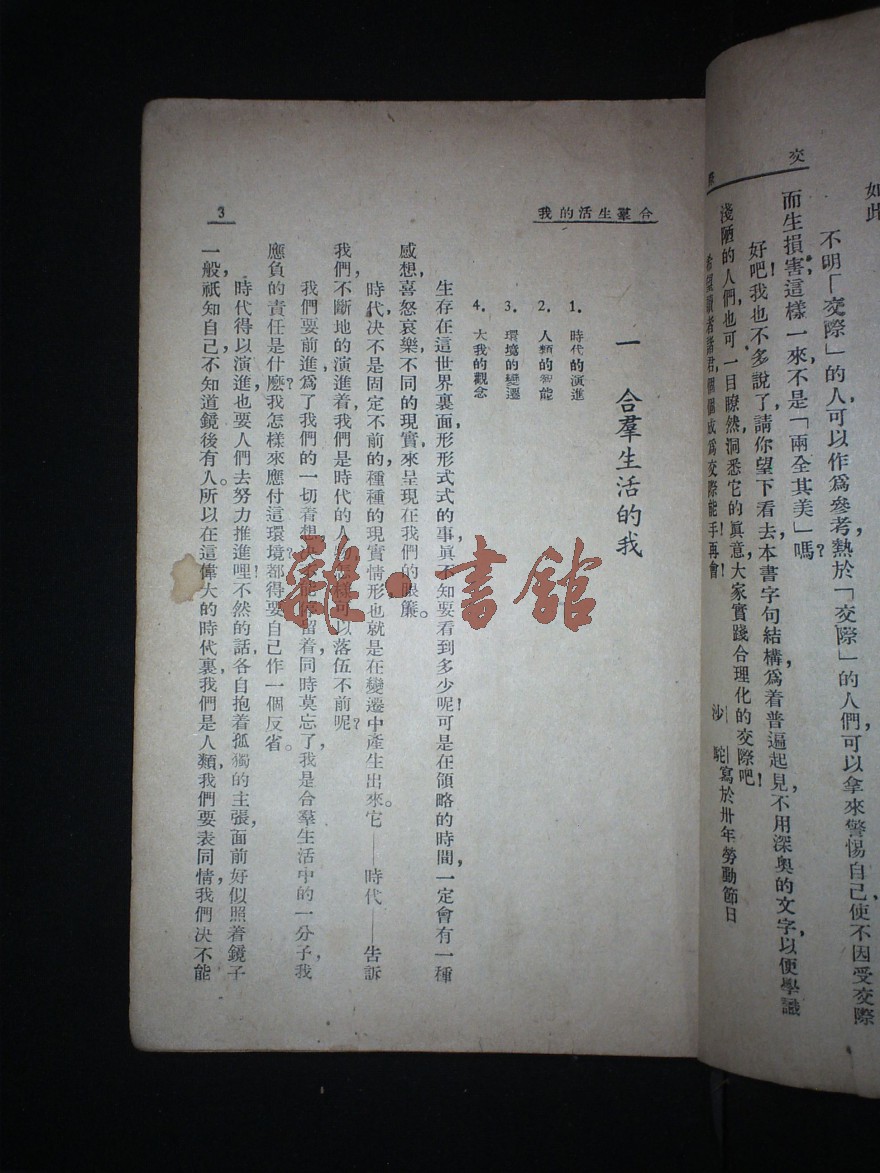 如此
不明「交際」的人可以作爲參考，熱於「交際」的人們，可以拿來警惕自己，使不因受交際
而生損害，這樣一來，不是「兩全其美」嗎？
好吧！我也不多說了，請你望下看去，本書字句結構，爲着普遍起見，不用深奥的文字，以便學識
淺陋的人們，也可一目瞭然，洞悉它的眞意，大家實踐合理化的交際吧！
希望讀者諸君，個個成爲交際能手，再會！
沙駝寫於卅年勞動節日
交
合羣生活的我
3
一 合羣生活的我
1. 時代的演進
2. 人類的智能
3. 環境的變遷
4. 大我的觀念
生存在這世界裏面，形形式式的事，眞不知要看到多少呢！可是在領略的時間，一定會有一種
感想，喜怒哀樂不同的現實，來呈現在我們的眼簾。
時代，决不是固定不前的，種種的現實情形，也就是在變遷中產生出來。它——時代——告訴
我們，不斷地的演進着，我們是時代的人，怎樣可以落伍不前呢？
我們要前進，爲了我們的一切着想，不能停留着，同時莫忘了，我是合羣生活中的一分子，我
應負的責任是什麼？我怎樣來應付這環境？都得要自己作一個反省。
時代得以演進，也要人們去努力推進哩！不然的話，各自抱着孤獨的主張，面前好似照着鏡子
一般，祇知自己，不知道鏡後有人。所以在這偉大的時代裏，我們是人類，我們要表同情，我們決不能
雜·書館